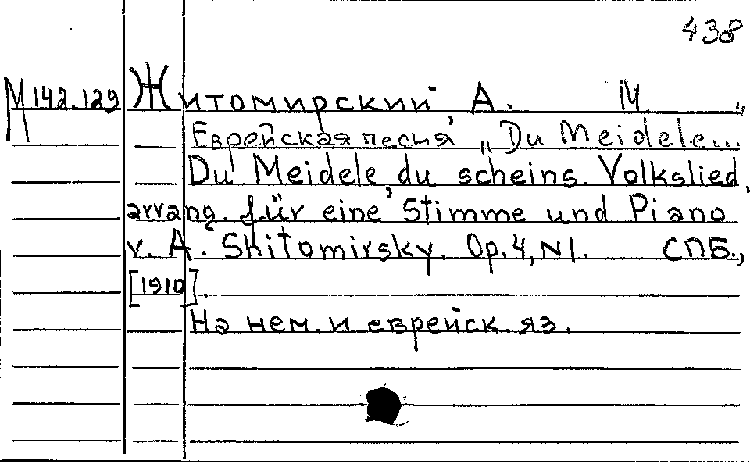 438
М 142.129 Житомирский А. М
Еврейская песня „Du Meidele..."
Du Meidele, du scheins. Volkslied,
arrang. für eine Stimme und Piano
v. A. Shitomirsky. Op. 4, N 1. СПБ.,
[1910].
На нем. и еврейск. яз.